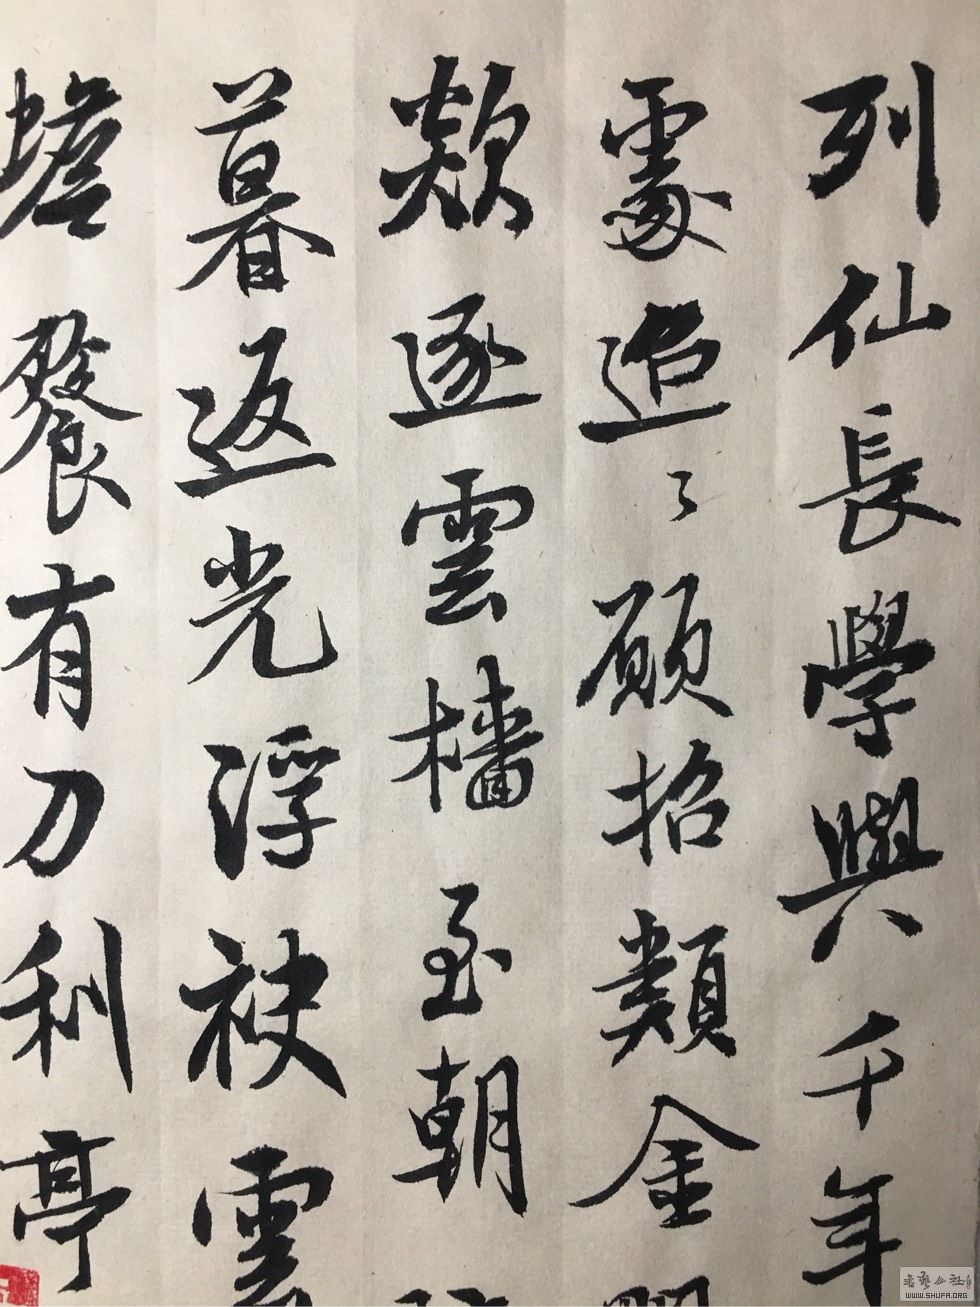 列仙長學與千年
追〻願招類金
欻逐雲檣至朝
暮返光浮袂雲
餐有刀利亭
書藝公社
WWW.SHUFA.ORG